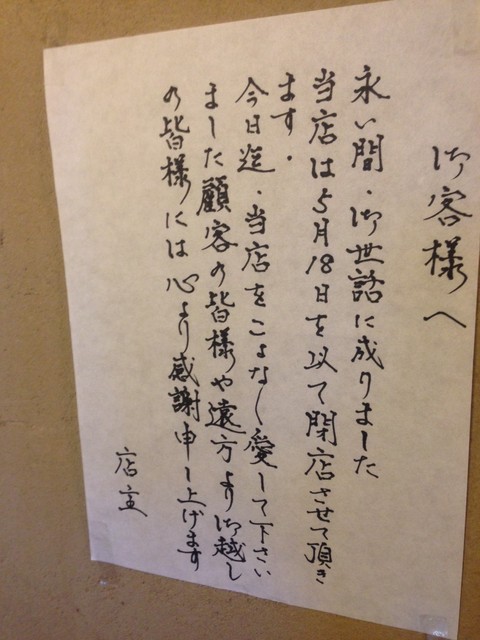 御客様へ
永い間・御世話に成りました
当店は5月18日を以て閉店させて頂き
ます・
今日迄・当店をこよなく愛して下さい
ました顧客の皆様や遠方より御越し
の皆様には心より感謝申し上げます
店主